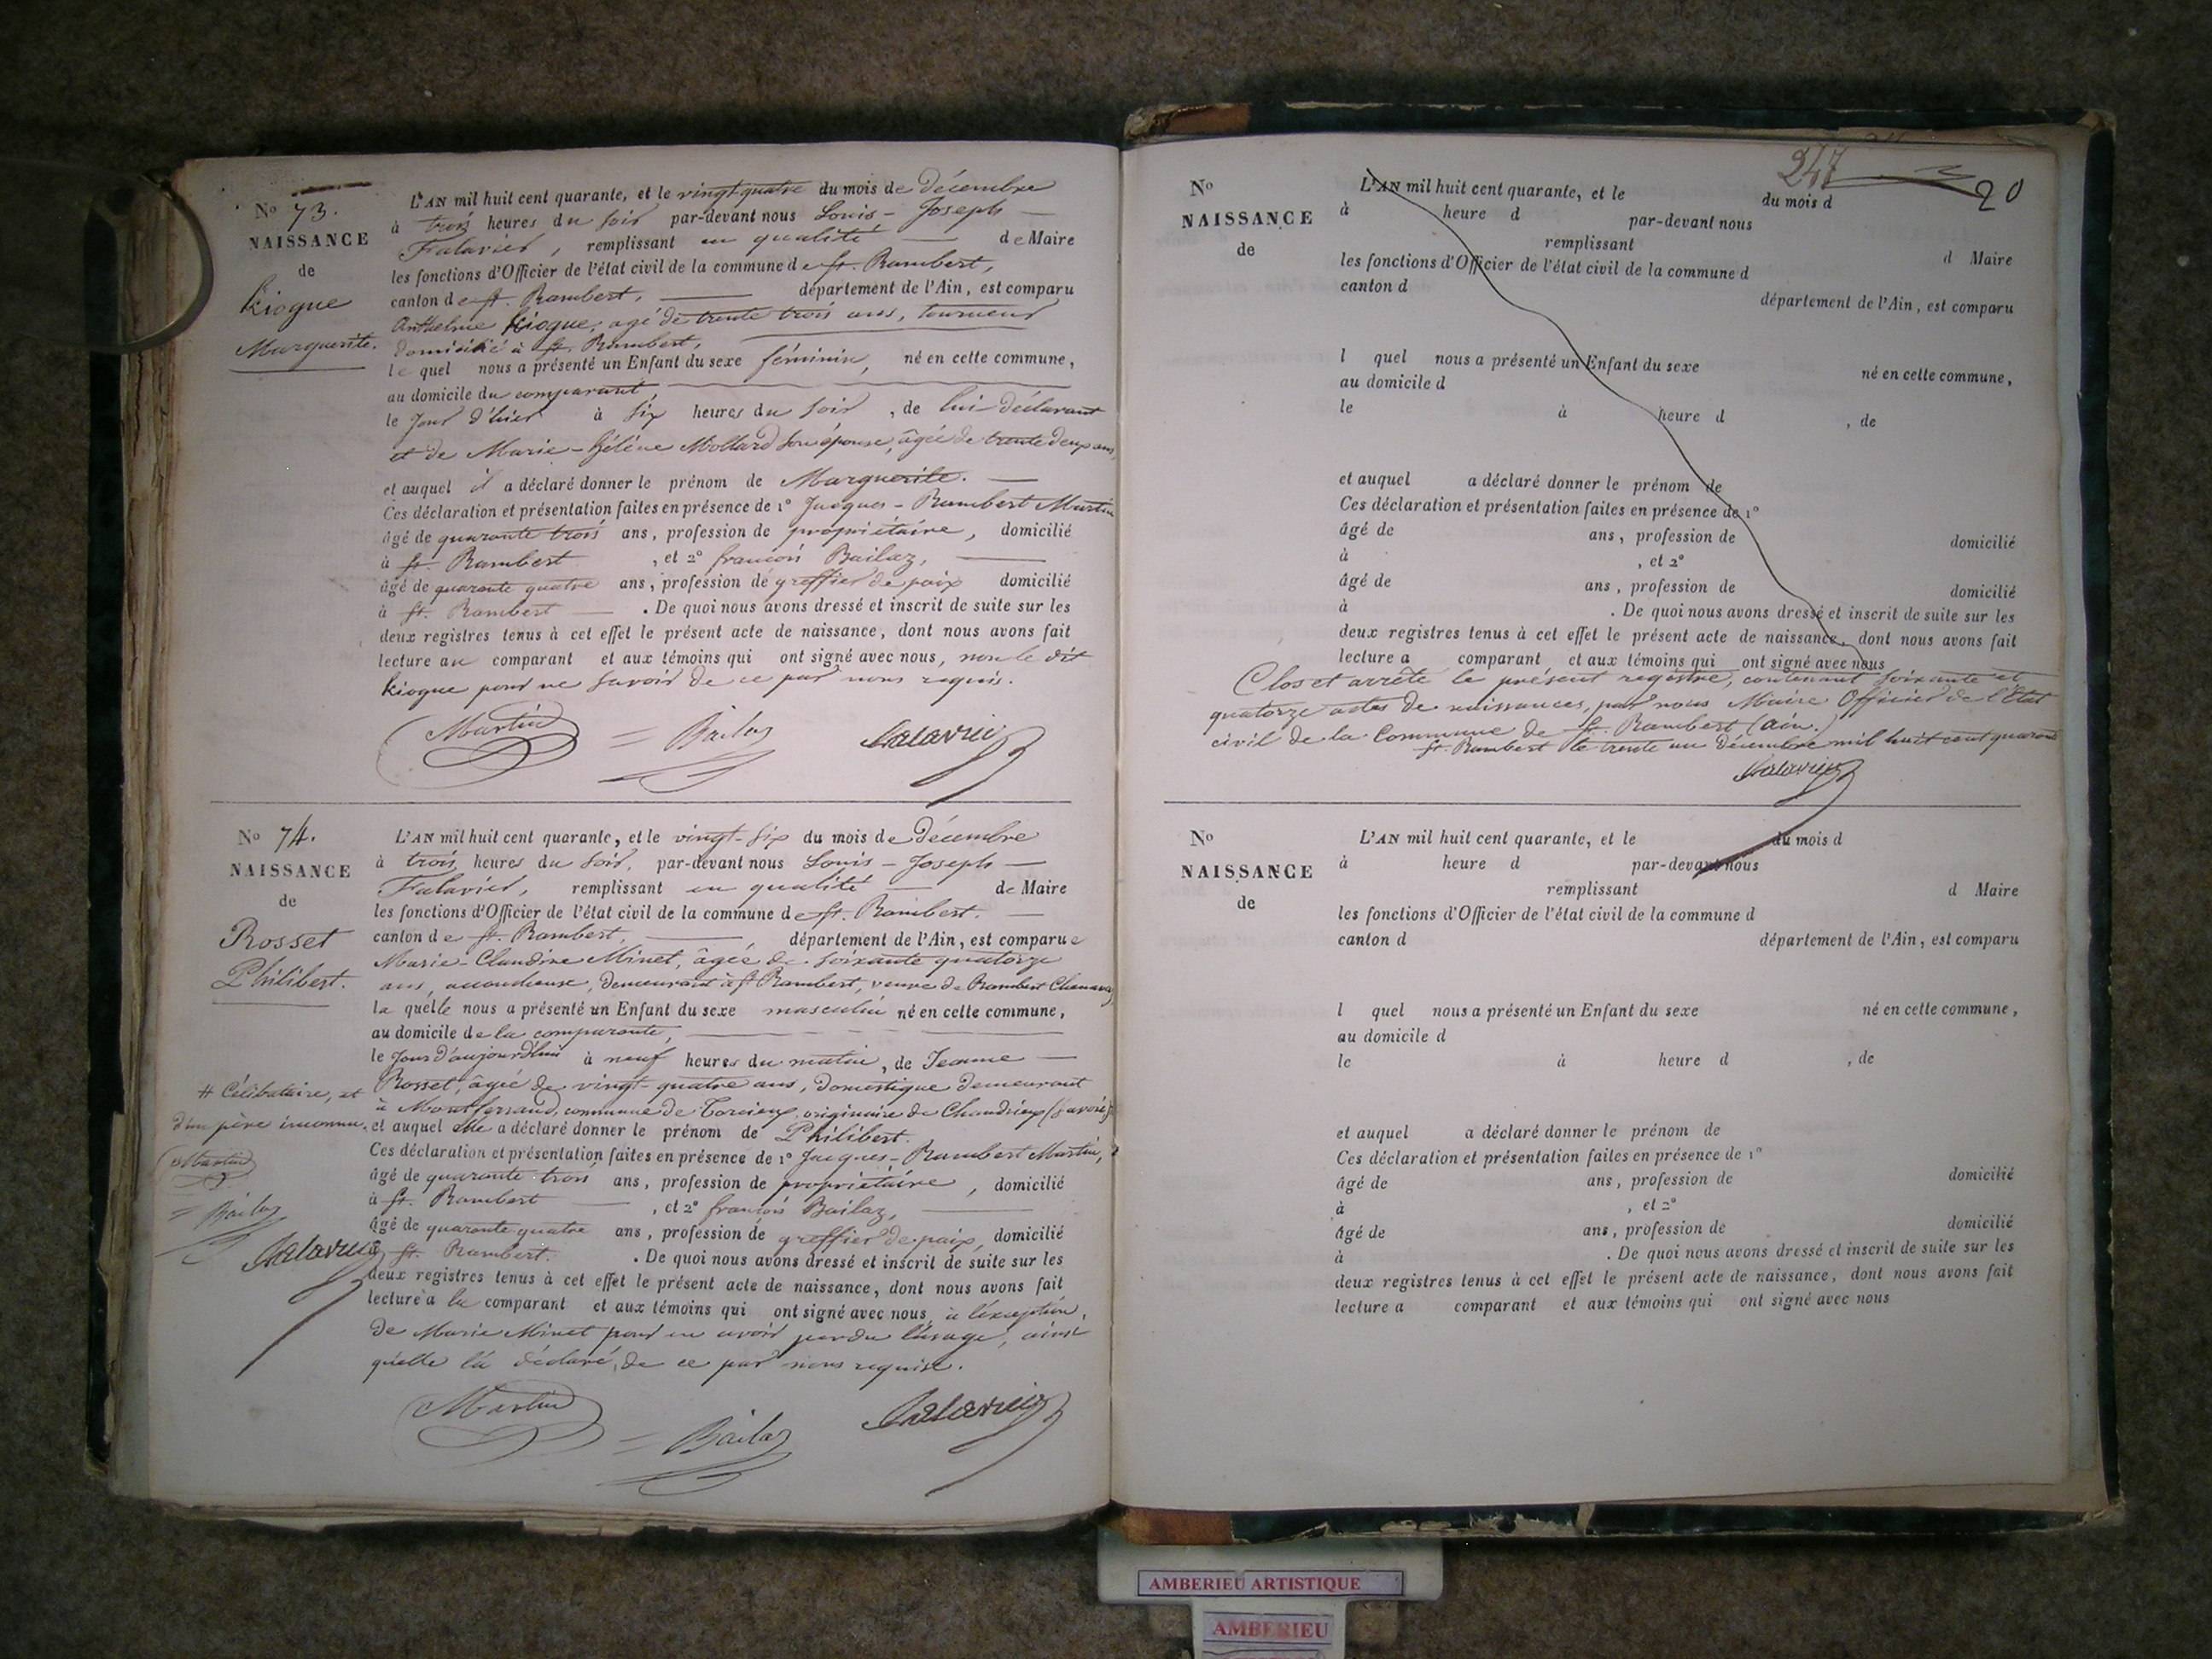 N.o 73.
NAISSANCE
de
Kiogue
Marguerite.
L'AN mil huit cent quarante, et le vingt quatre du mois de décembre
à trois heures du soir par-devant nous Louis - Joseph
Falavier, remplissant en qualité de Maire
les fonctions d'Officier de l'état civil de la commune de St. Rambert,
canton de St. Rambert, département de l'Ain, est comparu
Anthelme Kiogue, agé de trente trois ans, tourneur
domicilié à St. Rambert,
le quel nous a présenté un Enfant du sexe féminin, né en cette commune,
au domicile du comparant,
le jour d'hier à six heures du soir, de lui déclarant
et de Marie - hélène Mollard son épouse, âgée de trente deux ans,
et auquel il a déclaré donner le prénom de Marguerite.
Ces déclaration et présentation faites en présence de 1º Jacques - Rambert Martin
âgé de quarante trois ans, profession de propriétaire, domicilié
à St. Rambert, et 2º françois Bailaz,
âgé de quarante quatre ans, profession de greffier de paix domicilié
à St. Rambert. De quoi nous avons dressé et inscrit de suite sur les
deux registres tenus à cet effet le présent acte de naissance, dont nous avons fait
lecture au comparant et aux témoins qui ont signé avec nous, non le dit
Kiogue pour ne savoir de ce par nous requis.
Martin = Bailaz Falavier
N.o 74.
NAISSANCE
de
Rosset
Philibert.
L'AN mil huit cent quarante, et le vingt-six du mois de décembre
à trois heures du soir, par-devant nous Louis - Joseph
Falavier, remplissant en qualité de Maire
les fonctions d'Officier de l'état civil de la commune de St. Rambert.
canton de St. Rambert, département de l'Ain, est comparue
Marie - Claudine Minet, âgée de soixante quatorze
ans, accoucheuse, demeurant à St Rambert, veuve de Rambert Chanavaz
la quelle nous a présenté un Enfant du sexe masculin né en cette commune,
au domicile de la comparante,
le Jour d'aujourd'hui à neuf heures du matin, de Jeanne
Rosset, âgée de vingt-quatre ans, domestique demeurant
à Montferrand, commune de Torcieux, originaire de Chandrieux (Savoie)
et auquel elle a déclaré donner le prénom de Philibert.
# Célibataire, et
d'un père inconnu.
Martin
= Bailaz
Falavier
Ces déclaration et présentation faites en présence de 1º Jacques - Rambert Martin,
âgé de quarante trois ans, profession de propriétaire, domicilié
à St. Rambert, et 2º françois Bailaz,
âgé de quarante quatre ans, profession de greffier de paix, domicilié
St. Rambert. De quoi nous avons dressé et inscrit de suite sur les
deux registres tenus à cet effet le présent acte de naissance, dont nous avons fait
lecture à la comparant et aux témoins qui ont signé avec nous, à l'exception,
de Marie Minet pour en avoir perdu l'usage, ainsi
qu'elle l'a déclaré, de ce par nous requise.
Martin = Bailaz Falavier
247
20
No
NAISSANCE
de
L'AN mil huit cent quarante, et le du mois d
à heure d par-devant nous
remplissant d Maire
les fonctions d'Officier de l'état civil de la commune d
canton d département de l'Ain, est comparu
l quel nous a présenté un Enfant du sexe né en cette commune,
au domicile d
le à heure d , de
et auquel a déclaré donner le prénom de
Ces déclaration et présentation faites en présence de 1º
âgé de ans, profession de domicilié
à , et 2º
âgé de ans, profession de domicilié
à . De quoi nous avons dressé et inscrit de suite sur les
deux registres tenus à cet effet le présent acte de naissance, dont nous avons fait
lecture a comparant et aux témoins qui ont signé avec nous
Clos et arrêté le présent registre, contenant soixante et
quatorze actes de naissances, par nous Maire Officier de l'Etat
civil de la Commune de St. Rambert (ain.)
St. Rambert le trente un décembre mil huit cent quarante
Falavier
No
NAISSANCE
de
L'AN mil huit cent quarante, et le du mois d
à heure d par-devant nous
remplissant d Maire
les fonctions d'Officier de l'état civil de la commune d
canton d département de l'Ain, est comparu
l quel nous a présenté un Enfant du sexe né en cette commune,
au domicile d
le à heure d , de
et auquel a déclaré donner le prénom de
Ces déclaration et présentation faites en présence de 1º
âgé de ans, profession de domicilié
à , et 2º
âgé de ans, profession de domicilié
à . De quoi nous avons dressé et inscrit de suite sur les
deux registres tenus à cet effet le présent acte de naissance, dont nous avons fait
lecture a comparant et aux témoins qui ont signé avec nous
AMBERIEU ARTISTIQUE
AMBERIEU